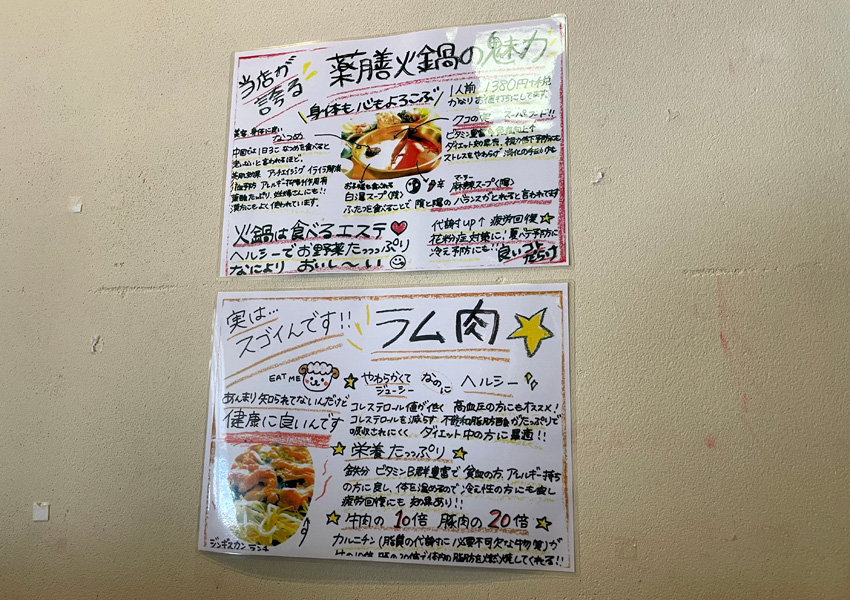 当店が
誇る
薬膳火鍋の魅力
身体も心もよろこぶ
1人前 1380円
かなりお値打ちにしてます
美容、身体に良い
なつめ
中国では1日3こ なつめを食べると
老いないと言われるほど。
美肌効果 アンチエイジング イライラ解消
漢方にもよく使われています。
クコの実 スーパーフード!!
ビタミン豊富
ストレスをやわらげ
お子様も食べれる
白湯スープ(陰)
辛
マーラー
麻辣スープ(陽)
ふたつを食べることで 陰と陽の バランスがとれると言われてます
火鍋は食べるエステ
ヘルシーでお野菜たっっっぷり
なにより おいし〜い
代謝up↑ 疲労回復
花粉症対策に! 夏バテ予防に
冷え予防にも!!
良いコト
だらけ
実は...
スゴイんです!!
ラム肉
EAT ME
あんまり知られてないんだけど
健康に良いんです
やわらかくて なのに ヘルシー
ジューシー
コレステロール値が低く 高血圧の方にもオススメ!
コレステロールを減らす 不飽和脂肪酸がたっぷりで
吸収されにくく ダイエット中の方に最適!!
栄養たっぷり
鉄分 ビタミンB群豊富で 貧血の方、アレルギー持ち
の方に良し、体を温めるので冷え性の方にも良し
疲労回復にも 効果あり!!
牛肉の10倍 豚肉の20倍
カルニチン(脂質の代謝に必要不可欠な物質)が
体内の脂肪を燃焼してくれる!!
ジンギスカン ランチ